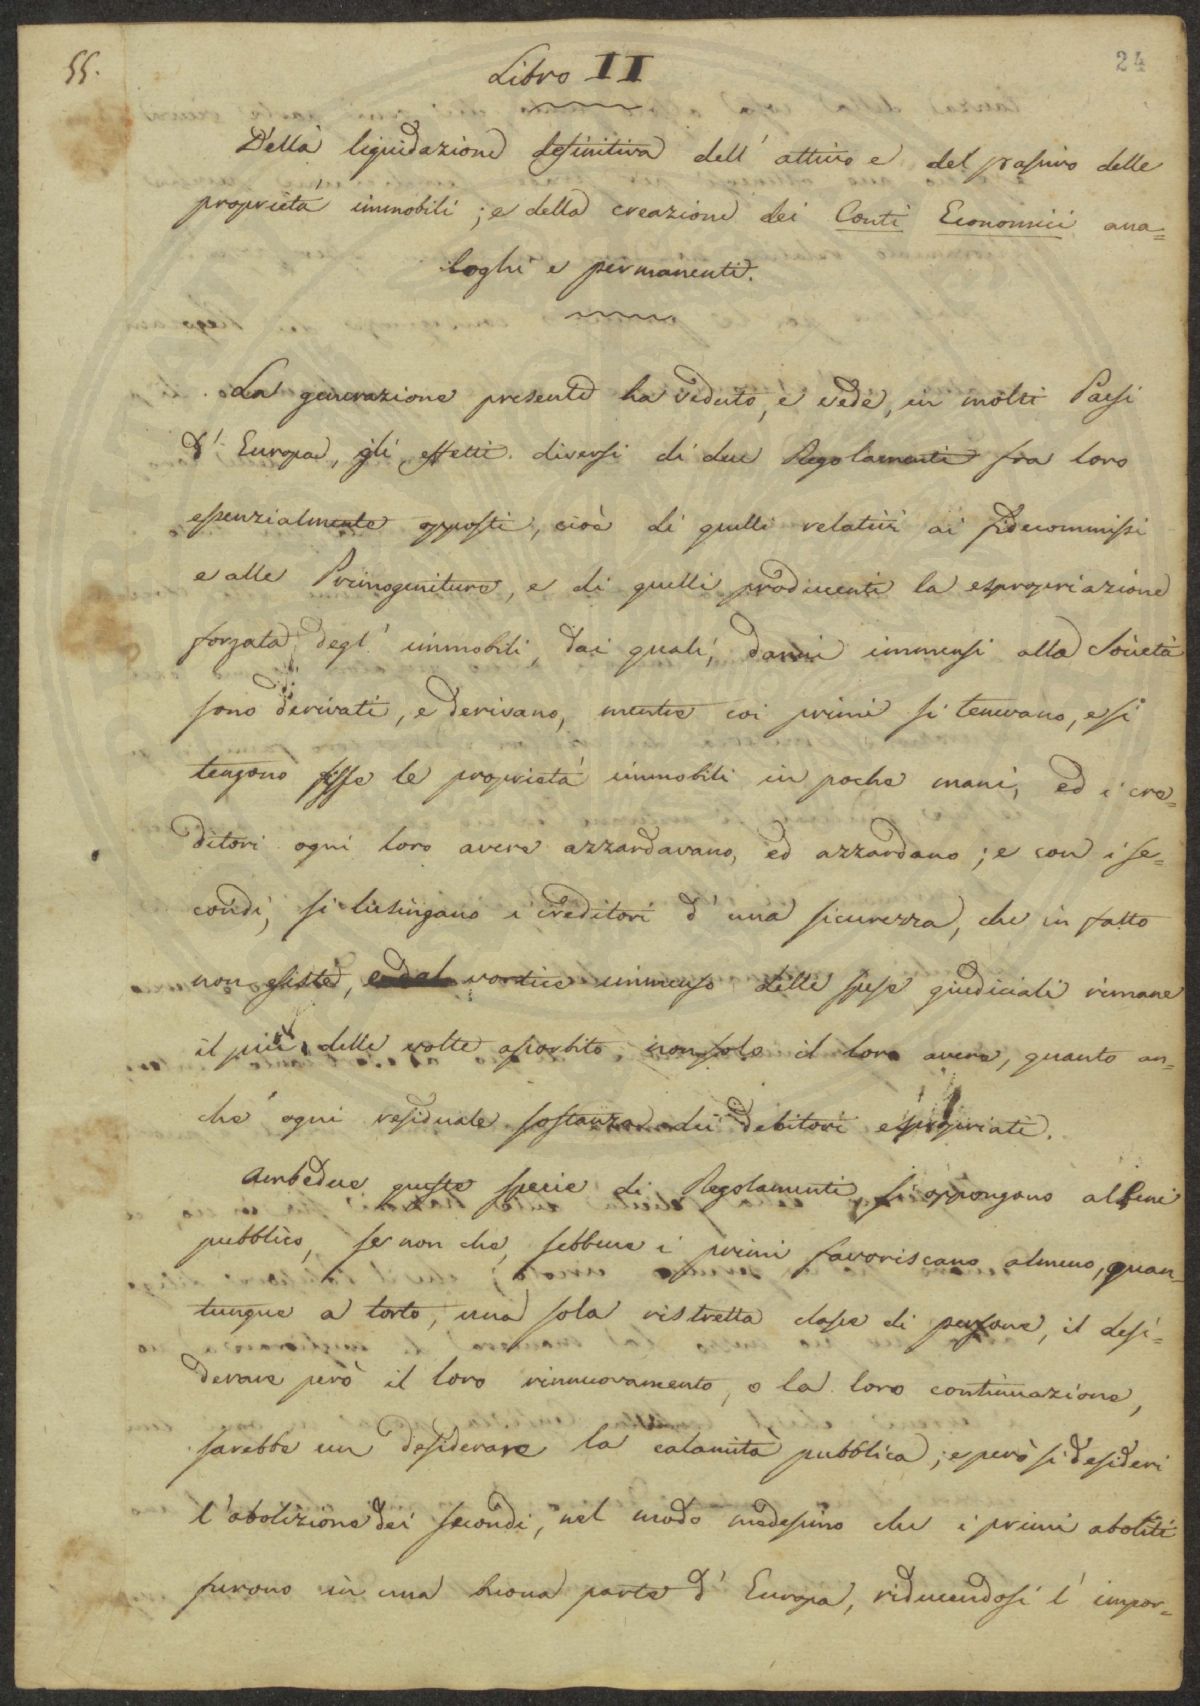 55.
24
Libro II
Della liquidazione definitiva dell' attivo e del passivo delle
proprietà immobili; e della creazione dei Conti Economici ana=
loghi e permanenti.
La generazione presente ha veduto, e vede, in molti Paesi
d' Europa, gli effetti diversi di due Regolamenti fra loro
essenzialmente opposti, cioè di quelli relativi ai fidecommissi
e alle Primogeniture, e di quelli producenti la espropriazione
forzata degl' immobili, dai quali, danni immensi alla Società
sono derivati, e derivano, mentre coi primi si tenevano, e si
tengono fisse le proprietà immobili in poche mani, ed i cre=
ditori ogni loro avere azzardavano, ed azzardano; e con i se=
condi, si lusingano i creditori d' una sicurezza, che in fatto
non esiste, e dal vortice immenso delle spese giudiciali rimane
il più delle volte assorbito non solo il loro avere, quanto an=
che ogni residuale sostanza dei debitori espropriati.
Ambedue queste specie di Regolamenti si oppongono al bene
pubblico, se non che, sebbene i primi favoriscano almeno, quan=
tunque a torto, una sola ristretta classe di persone, il desi=
derare però il loro rinnuovamento, o la loro continuazione,
sarebbe un desiderare la calamità pubblica; e però si desideri
l'abolizione dei secondi, nel modo medesimo che i primi aboliti
furono in una buona parte d' Europa, riducendosi l' impor=